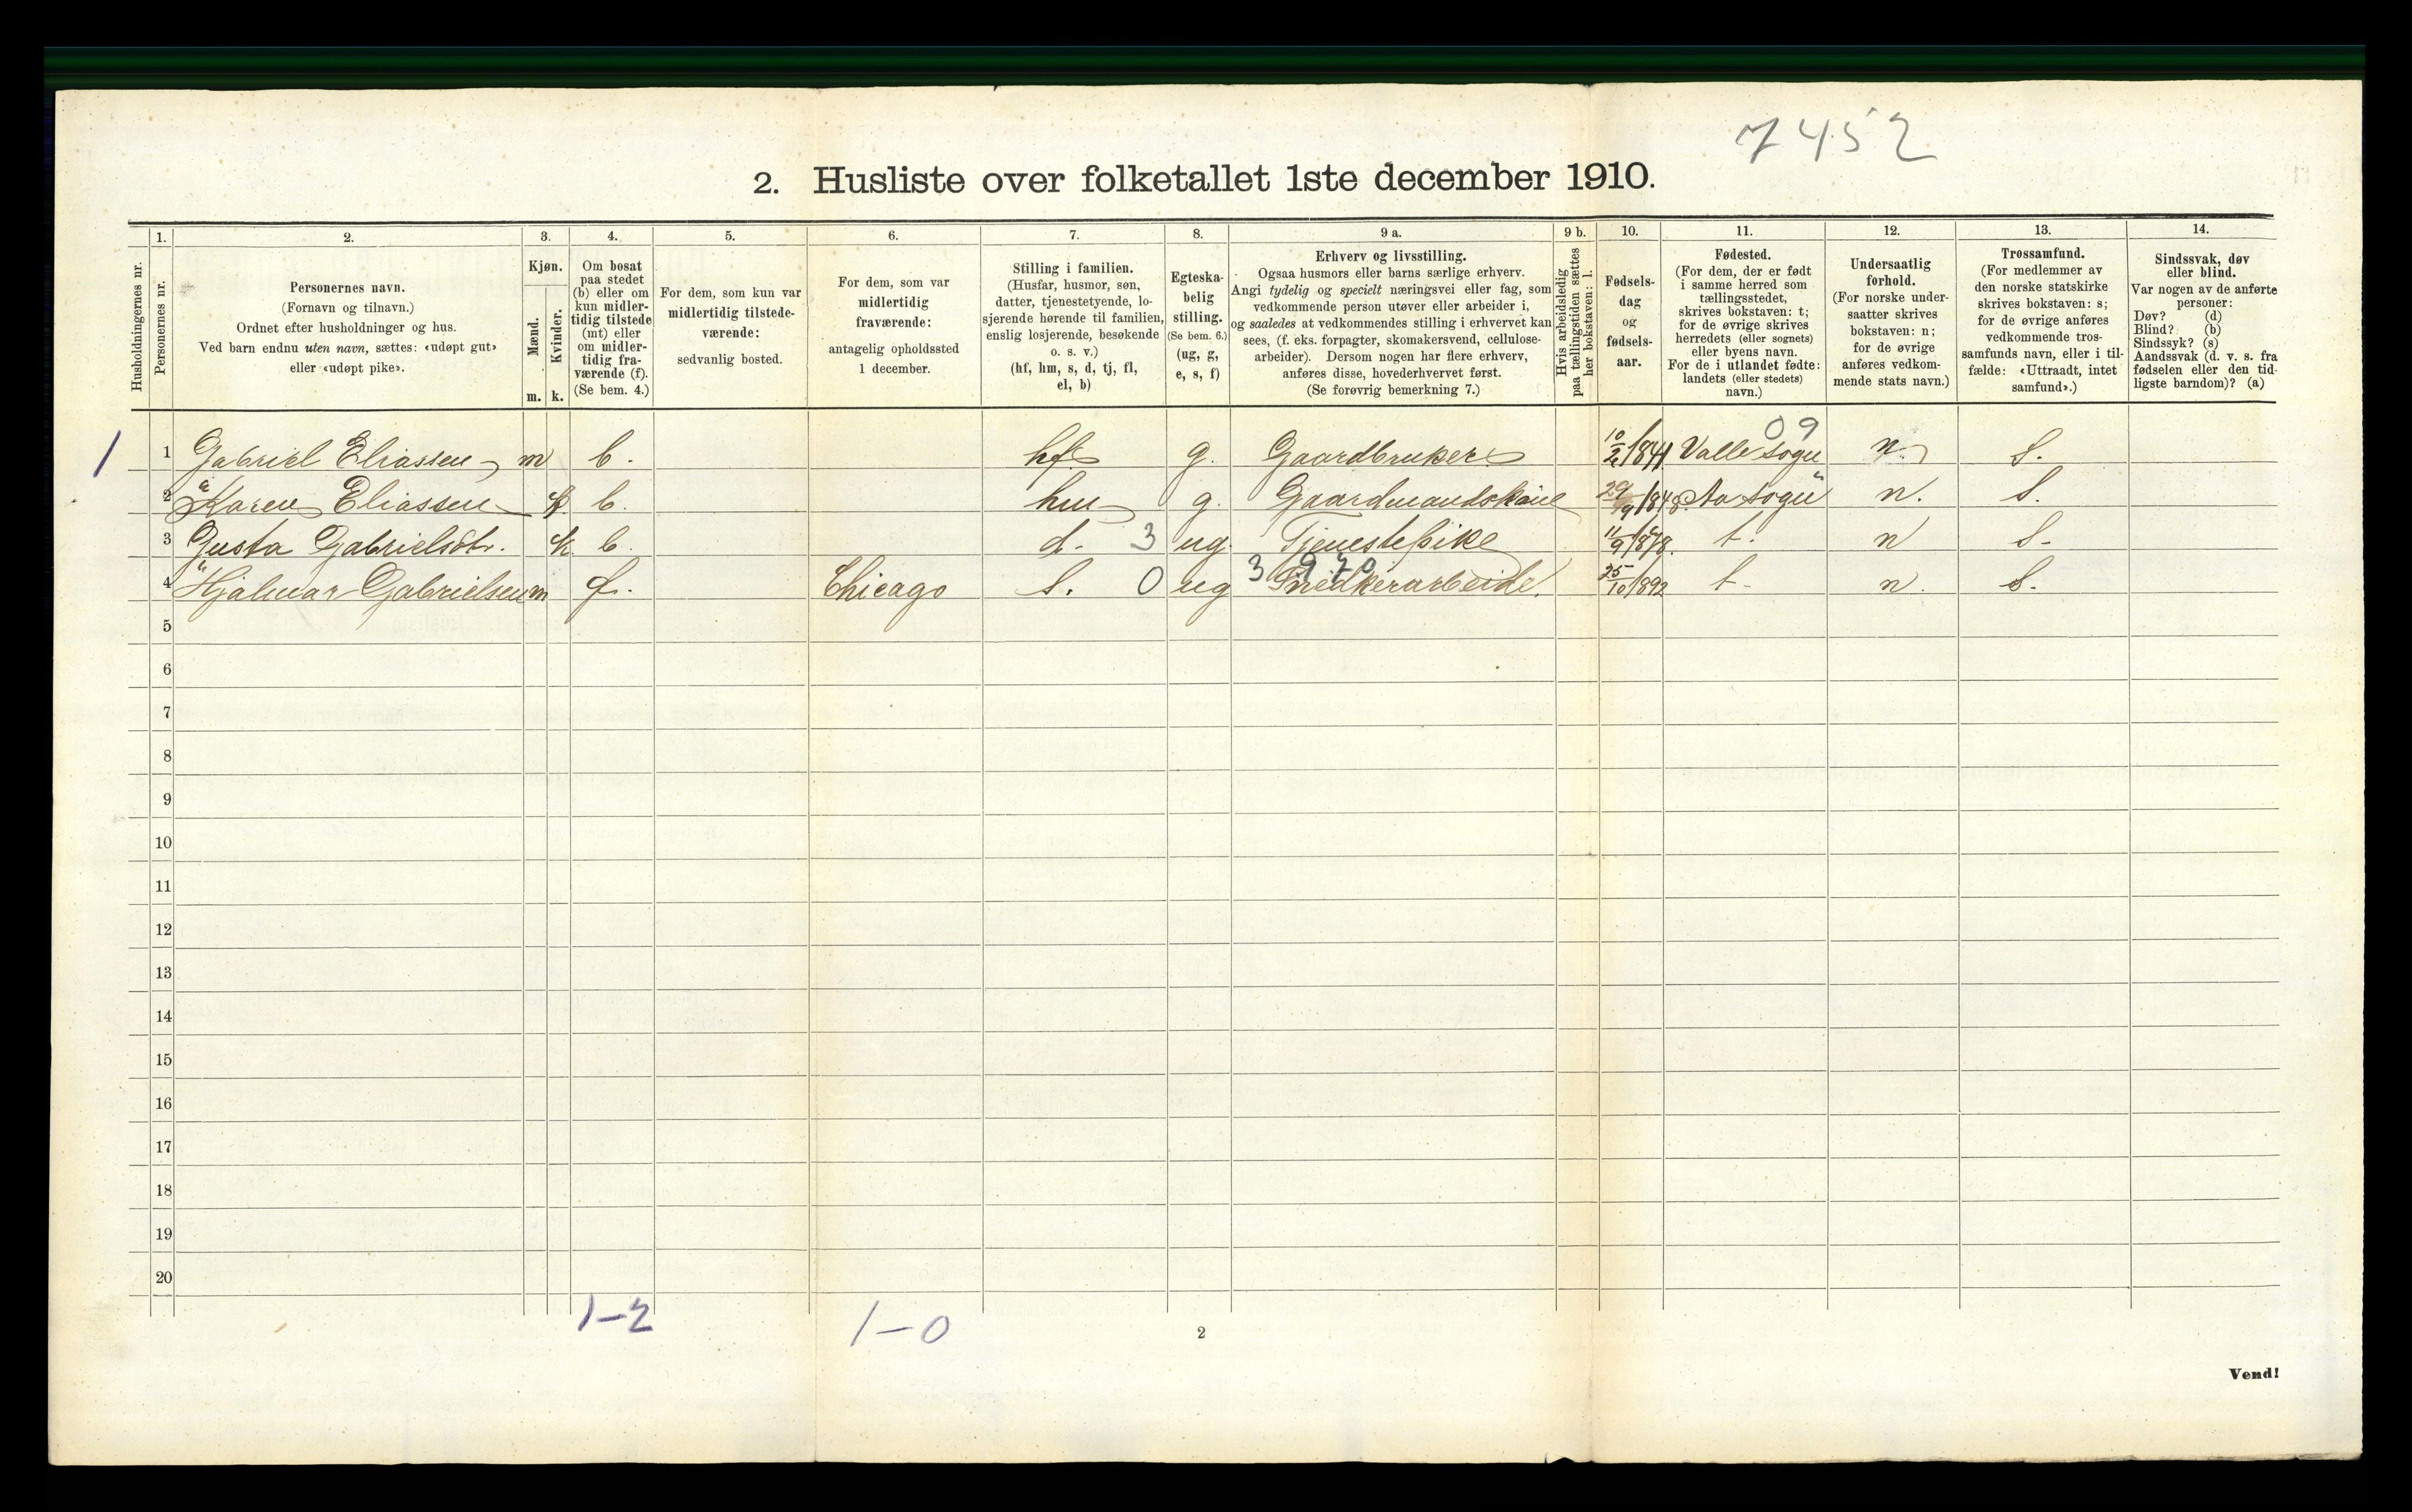 7452
2. Husliste over folketallet 1ste december 1910.
Husholdningernes nr.
1.
Personernes nr.
2.
Personernes navn.
(Fornavn og tilnavn.)
Ordnet efter husholdninger og hus.
Ved barn endnu uten navn, sættes: «udøpt gut»
eller «udøpt pike».
3.
Kjøn.
Mænd.
Kvinder.
m. k.
4.
Om bosat
paa stedet
(b) eller om
kun midler-
tidig tilstede
(mt) eller
om midler-
tidig fra-
værende (f).
(Se bem. 4.)
5.
For dem, som kun var
midlertidig tilstede-
værende:
sedvanlig bosted.
6.
For dem, som var
midlertidig
fraværende:
antagelig opholdssted
1 december.
7.
Stilling i familien.
(Husfar, husmor, søn,
datter, tjenestetyende, lo-
sjerende hørende til familien,
enslig losjerende, besøkende
o. s. v.)
(hf, hm, s, d, tj, fl,
el, b)
8.
Egteska-
belig
stilling.
(Se bem. 6.)
(ug, g,
e, s, f)
9 a.
Erhverv og livsstilling.
Ogsaa husmors eller barns særlige erhverv.
Angi tydelig og specielt næringsvei eller fag, som
vedkommende person utøver eller arbeider i,
og saaledes at vedkommendes stilling i erhvervet kan
sees, (f. eks. forpagter, skomakersvend, cellulose-
arbeider). Dersom nogen har flere erhverv,
anføres disse, hovederhvervet først.
(Se forøvrig bemerkning 7.)
9 b.
Hvis arbeidsledig
paa tællingstiden sættes
her bokstaven: l.
10.
Fødsels-
dag
og
fødsels-
aar.
11.
Fødested.
(For dem, der er født
i samme herred som
tællingsstedet,
skrives bokstaven: t;
for de øvrige skrives
herredets (eller sognets)
eller byens navn.
For de i utlandet fødte:
landets (eller stedets)
navn.)
12.
Undersaatlig
forhold.
(For norske under-
saatter skrives
bokstaven: n;
for de øvrige
anføres vedkom-
mende stats navn.)
13.
Trossamfund.
(For medlemmer av
den norske statskirke
skrives bokstaven: s;
for de øvrige anføres
vedkommende tros-
samfunds navn, eller i til-
fælde: «Uttraadt, intet
samfund».)
14.
Sindssvak, døv
eller blind.
Var nogen av de anførte
personer:
Døv? (d)
Blind? (b)
Sindssyk? (s)
Aandssvak (d. v. s. fra
fødselen eller den tid-
ligste barndom)? (a)
09
1 1 Gabriel Eliassen m b. hf. g. Gaardbruker 10/2 1841 Valle sogn n. S.
2 Karen Eliassen k. b. hm g. Gaardmandskone 29/9 1848 sogn n. S.
3 Gusta Gabrielsdtr. k. b. d. 3 ug. Tjenestepike 11/9 1878. t. n S.
3 9 70
4 Hjalmar Gabrielsen m f. Chicago S. 0 ug Snedkerarbeide. 25/10 1892 t. n. S.
5
6
7
8
9
10
11
12
13
14
15
16
17
18
19
20
1-2
1-0
2
Vend!